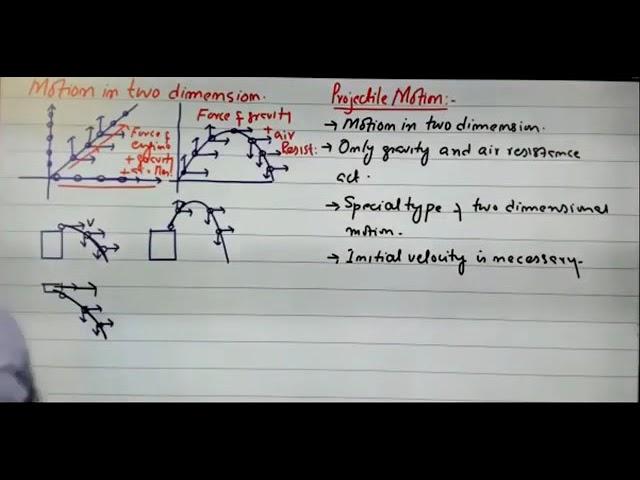 Motion in two dimension.
Force of gravity
+ air
Resist:
Force of
engine
+ gravity
V
Projectile Motion:-
→ Motion in two dimension.
→ Only gravity and air resistance
act.
→ Special type of two dimensional
motion.
→ Initial velocity is necessary.